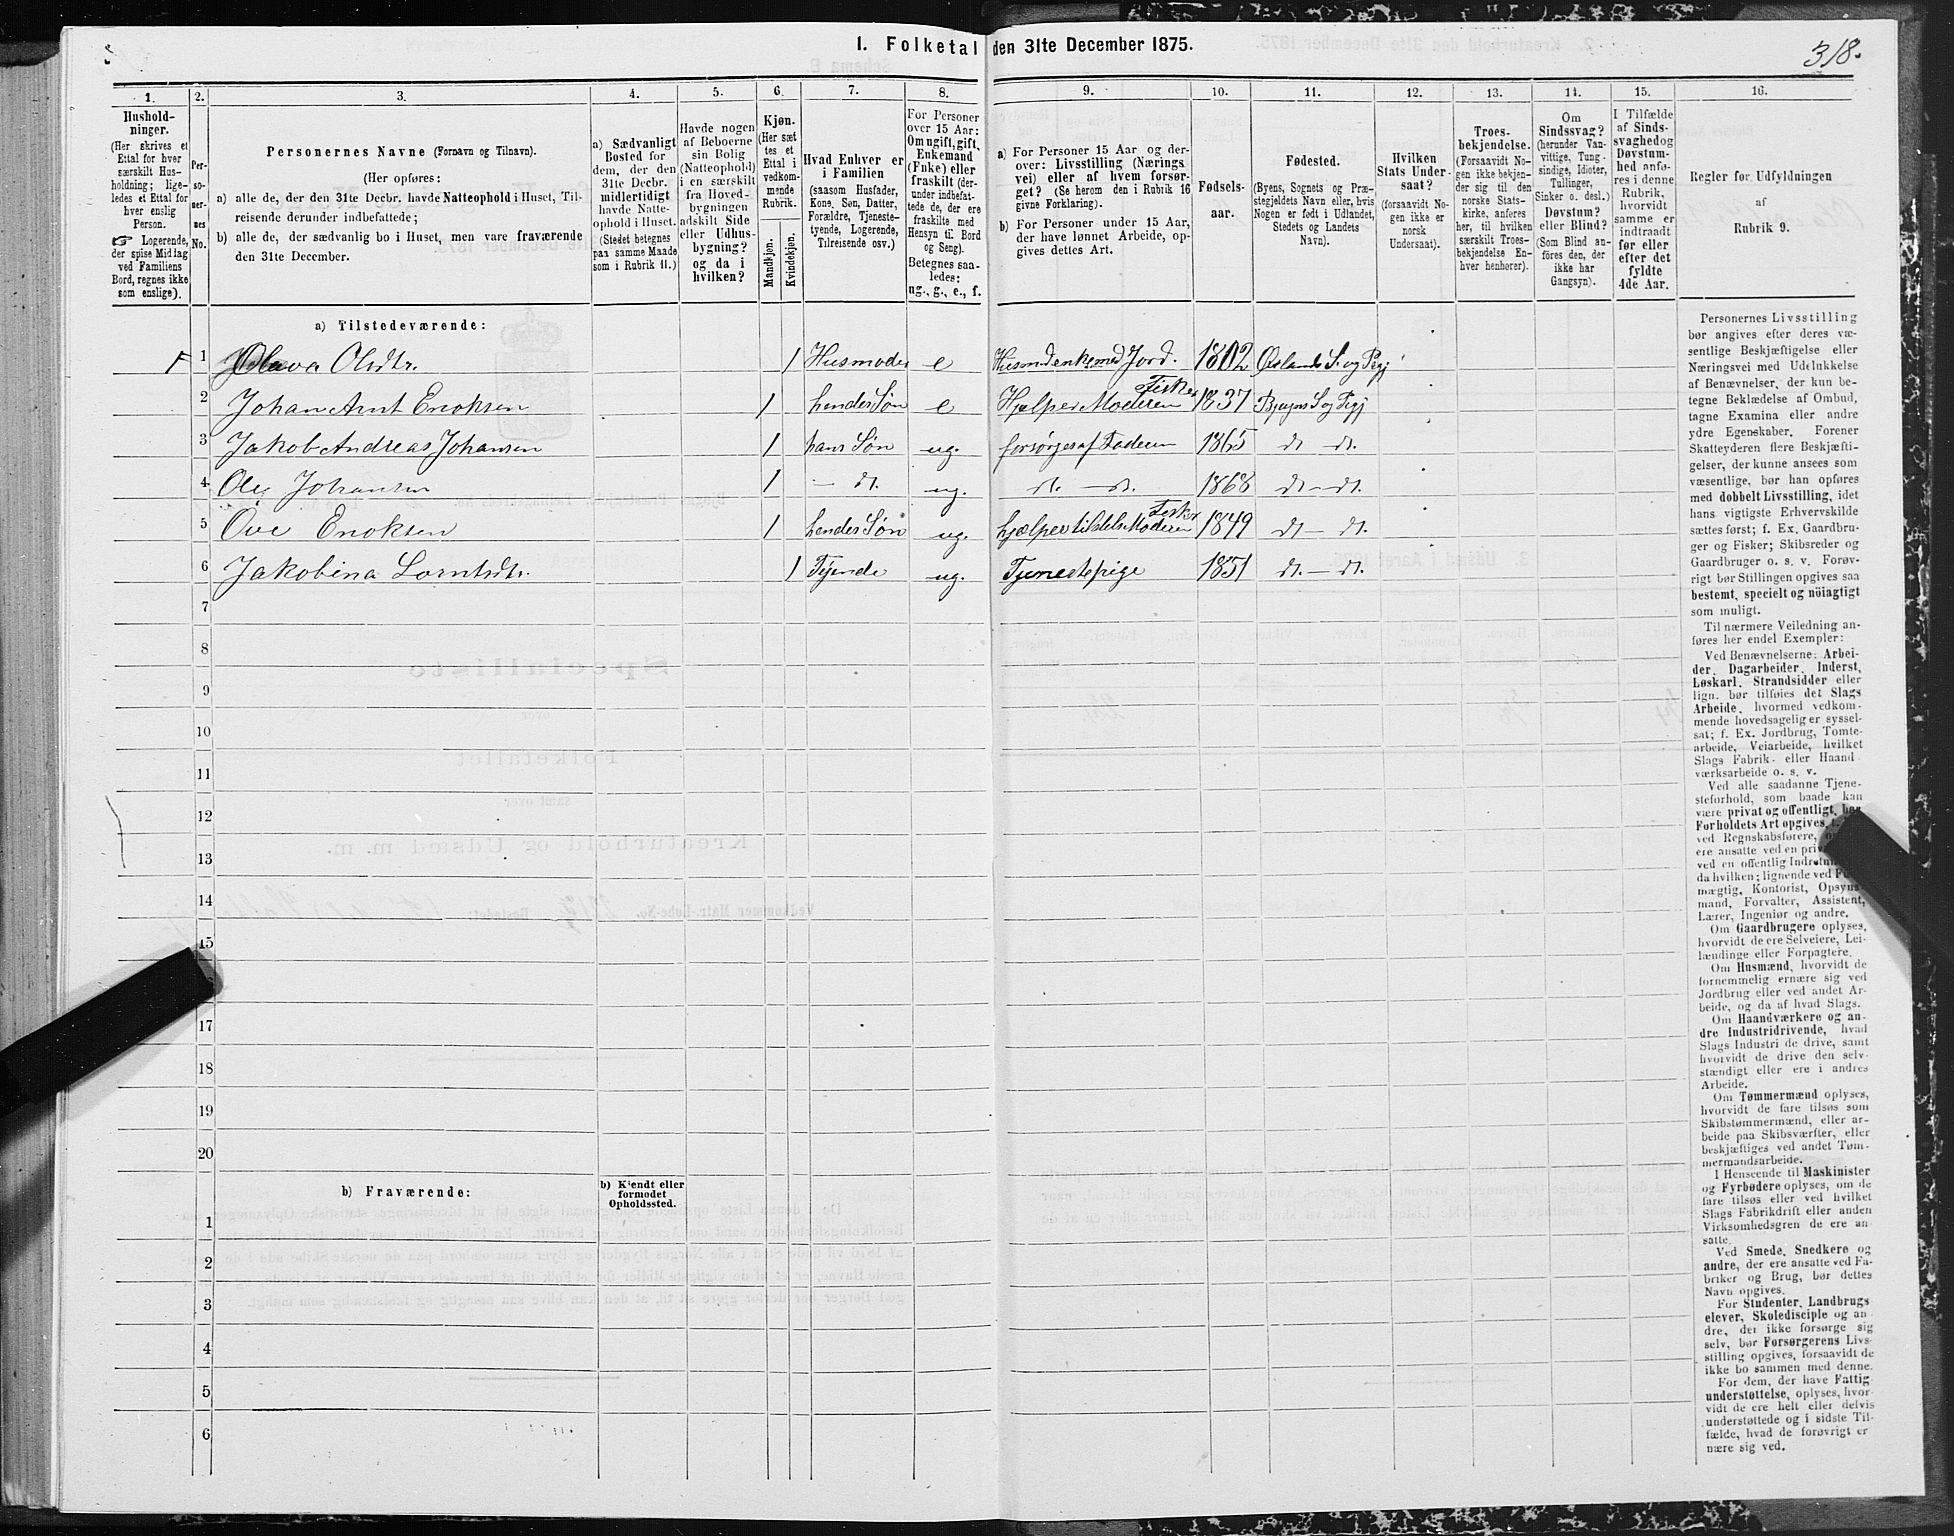 318.
I. Folketal den 31te December 1875.
1. 2. 3. 4. 5. 6. 7. 8. 9. 10. 11. 12. 13. 14. 15. 16.
Hushold-
ninger.
(Her skrives et
Ettal for hver
særskilt Hus-
holdning; lige-
ledes et Ettal for
hver enslig
Person.
☞ Logerende,
der spise Middag
ved Familiens
Bord, regnes ikke
som enslige).
Per-
so-
ner-
nes
No.
Personernes Navne (Fornavn og Tilnavn).
(Her opføres:
a) alle de, der den 31te Decbr. havde Natteophold i Huset, Til-
reisende derunder indbefattede;
b) alle de, der sædvanlig bo i Huset, men vare fraværende
den 31te December.
a) Sædvanligt
Bosted for
dem, der den
31te Decbr.
midlertidigt
havde Natte-
ophold i Huset.
(Stedet betegnes
paa samme Maade
som i Rubrik 11.)
Havde nogen
af Beboerne
sin Bolig
(Natteophold)
i en særskilt
fra Hoved-
bygningen
adskilt Side
eller Udhus-
bygning?
og da i
hvilken?
Kjøn.
(Her sæt
tes et
Ettal i
vedkom-
mende
Rubrik.
Mandkjøn.
Kvindekjøn.
Hvad Enhver er
i Familien
(saasom Husfader,
Kone, Søn, Datter,
Forældre, Tjeneste-
tyende, Logerende,
Tilreisende osv.)
For Personer
over 15 Aar:
Om ugift, gift,
Enkemand
(Enke) eller
fraskilt (der-
under indbefat-
tede de, der ere
fraskilte med
Hensyn til Bord
og Seng).
Betegnes saa-
ledes:
ug., g., e., f.
a) For Personer 15 Aar og der-
over: Livsstilling (Nærings
vei) eller af hvem forsør-
get? (Se herom den i Rubrik 16
givne Forklaring).
b) For Personer under 15 Aar,
der have lønnet Arbeide, op-
gives dettes Art.
Fødsels-
aar.
Fødested.
(Byens, Sognets og Præ-
stegjeldets Navn eller, hvis
Nogen er født i Udlandet,
Stedets og Landets
Navn).
Hvilken
Stats Under-
saat?
(forsaavidt No-
gen ikke er
norsk
Undersaat).
Troes-
bekjendelse.
(Forsaavidt No-
gen ikke bekjen-
der sig til den
norske Stats-
kirke, anføres
her, til hvilken
særskilt Troes-
bekjendelse En-
hver henhører).
Om
Sindssvag?
(herunder Van-
vittige, Tung-
sindige, Idioter,
Tullinger,
Sinker o. desl.)
Døvstum?
eller Blind?
(Som Blind an-
føres den, der
ikke har
Gangsyn).
I Tilfælde
af Sinds-
svaghed og
Døvstum-
hed anfø-
res i denne
Rubrik,
hvorvidt
samme er
indtraadt
før eller
efter det
fyldte
4de Aar.
Regler for Udfyldningen
af
Rubrik 9.
a) Tilstedeværende:
1 Olava Olsdtr. 1 Husmoder e Husmdenke med Jord. 1802 Ørlands S. og Prgj
2 Johan Arnt Enoksen 1 hendes Søn e Hjælper Moderen Fisker 1837 Bjugns S og Prgj
3 Jakob Andreas Johansen 1 hans Søn ug. forsørges af Faderen 1865 dt dt.
4 Ole Johansen 1 – dt. ug. dt. – dt. 1868 dt – dt.
5 Ove Enoksen 1 hendes Søn ug. hjælper tildels Moderen Fisker 1849 dt – dt.
6 Jakobina Lorntsdtr. 1 Tjende ug. Tjenestepige 1851 dt. – dt.
7
8
9
10
11
12
13
14
15
17
18
19
20
b) Fraværende:
b) Kjendt eller
formodet
Opholdssted.
1
2
3
4
5
6
Personernes Livsstilling
bør angives efter deres væ-
sentlige Beskjæftigelse eller
Næringsvei med Udelukkelse
af Benævnelser, der kun be-
tegne Beklædelse af Ombud,
tagne Examina eller andre
ydre Egenskaber. Forener
Skatteyderen flere Beskjæfti-
gelser, der kunne ansees som
væsentlige, bør han opføres
med dobbelt Livsstilling, idet
hans vigtigste Erhvervskilde
sættes først; f. Ex. Gaardbru-
ger og Fisker; Skibsreder og
Gaardbruger o. s. v. Forøv-
rigt bør Stillingen opgives saa
bestemt, specielt og nöiagtigt
som muligt.
Til nærmere Veiledning an-
føres her endel Exempler:
Ved Benævnelserne: Arbei-
der, Dagarbeider, Inderst,
Løskarl, Strandsidder eller
lign. bør tilføies det Slags
Arbeide, hvormed vedkom-
mende hovedsagelig er syssel-
sat; f. Ex. Jordbrug, Tomte-
arbeide, Veiarbeide, hvilket
Slags Fabrik- eller Haand-
værksarbeide o. s. v.
Ved alle saadanne Tjene-
steforhold, som baade kan
være privat og offentligt, bør
Forholdets Art opgives,
ved Regnskabsførere,
ere ansatte ved en
ved en offentlig
da hvilken; lignende ved
mægtig, Kontorist, Opsyns-
mand, Forvalter, Assistent,
Lærer, Ingeniør og andre.
Om Gaardbrugere oplyses,
hvorvidt de ere Selveiere, Lei-
lændinge eller Forpagtere.
Om Husmænd, hvorvidt de
fornemmelig ernære sig ved
Jordbrug eller ved andet Ar-
beide, og da af hvad Slags.
Om Haandværkere og an-
dre Industridrivende, hvad
Slags Industri de drive, samt
hvorvidt de drive den selv-
stændigt eller ere i andres
Arbeide.
Om Tømmermænd oplyses,
hvorvidt de fare tilsøs som
Skibstømmermænd, eller ar-
beide paa Skibsværfter, eller
beskjæftiges ved andet Tøm-
mermandsarbeide.
I Henseende til Maskinister
og Fyrbødere oplyses, om de
fare tilsøs eller ved hvilket
Slags Fabrikdrift eller anden
Virksomhedsgren de ere an-
satte.
Ved Smede, Snedkere og
andre, der ere ansatte ved Fa-
briker og Brug, bør dettes
Navn opgives.
For Studenter, Landbrugs-
elever, Skoledisciple og an-
dre, der ikke forsørge sig
selv, bør Forsørgerens Livs-
stilling opgives, forsaavidt de
ikke bo sammen med denne.
For dem, der have Fattig-
understøttelse, oplyses, hvor-
vidt de ere helt eller delvis
understøttede og i sidste Til-
fælde, hvad de forøvrigt er
nære sig ved.